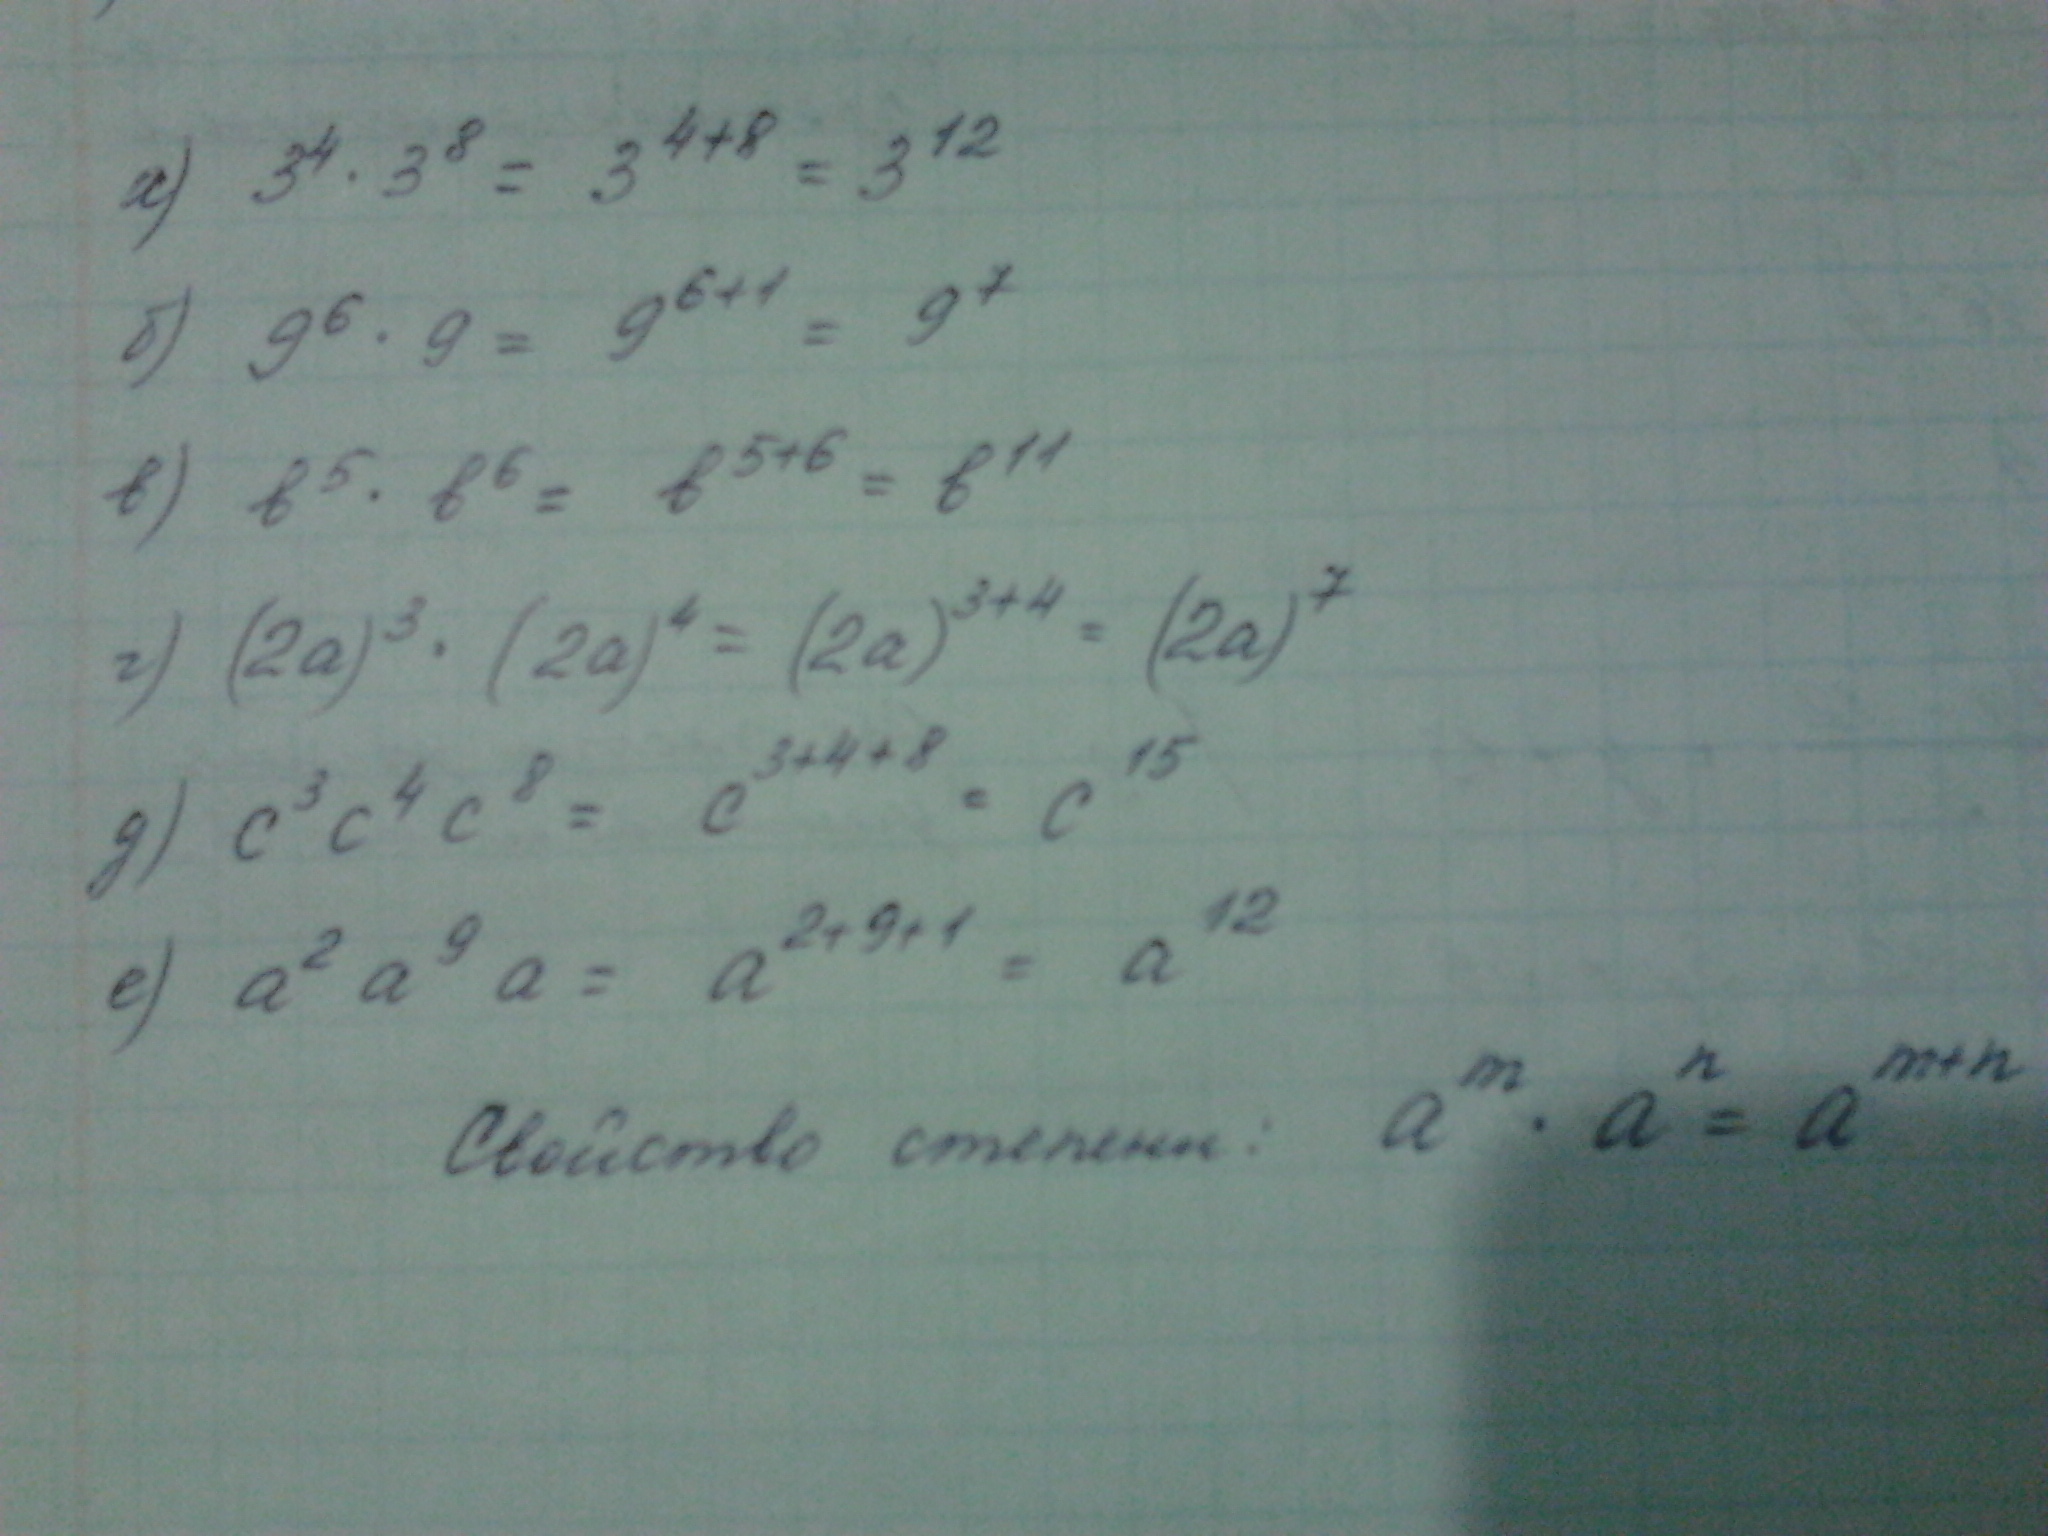 а) 3⁴ · 3⁸ = 3⁴⁺⁸ = 3¹²
б) 9⁶ · 9 = 9⁶⁺¹ = 9⁷
в) в⁵ · в⁶ = в⁵⁺⁶ = в¹¹
г) (2a)³ · (2a)⁴ = (2a)³⁺⁴ = (2a)⁷
д) c³ c⁴ c⁸ = c³⁺⁴⁺⁸ = c¹⁵
е) a² a⁹ a = a²⁺⁹⁺¹ = a¹²
Свойство степени: aᵐ · aⁿ = aᵐ⁺ⁿ